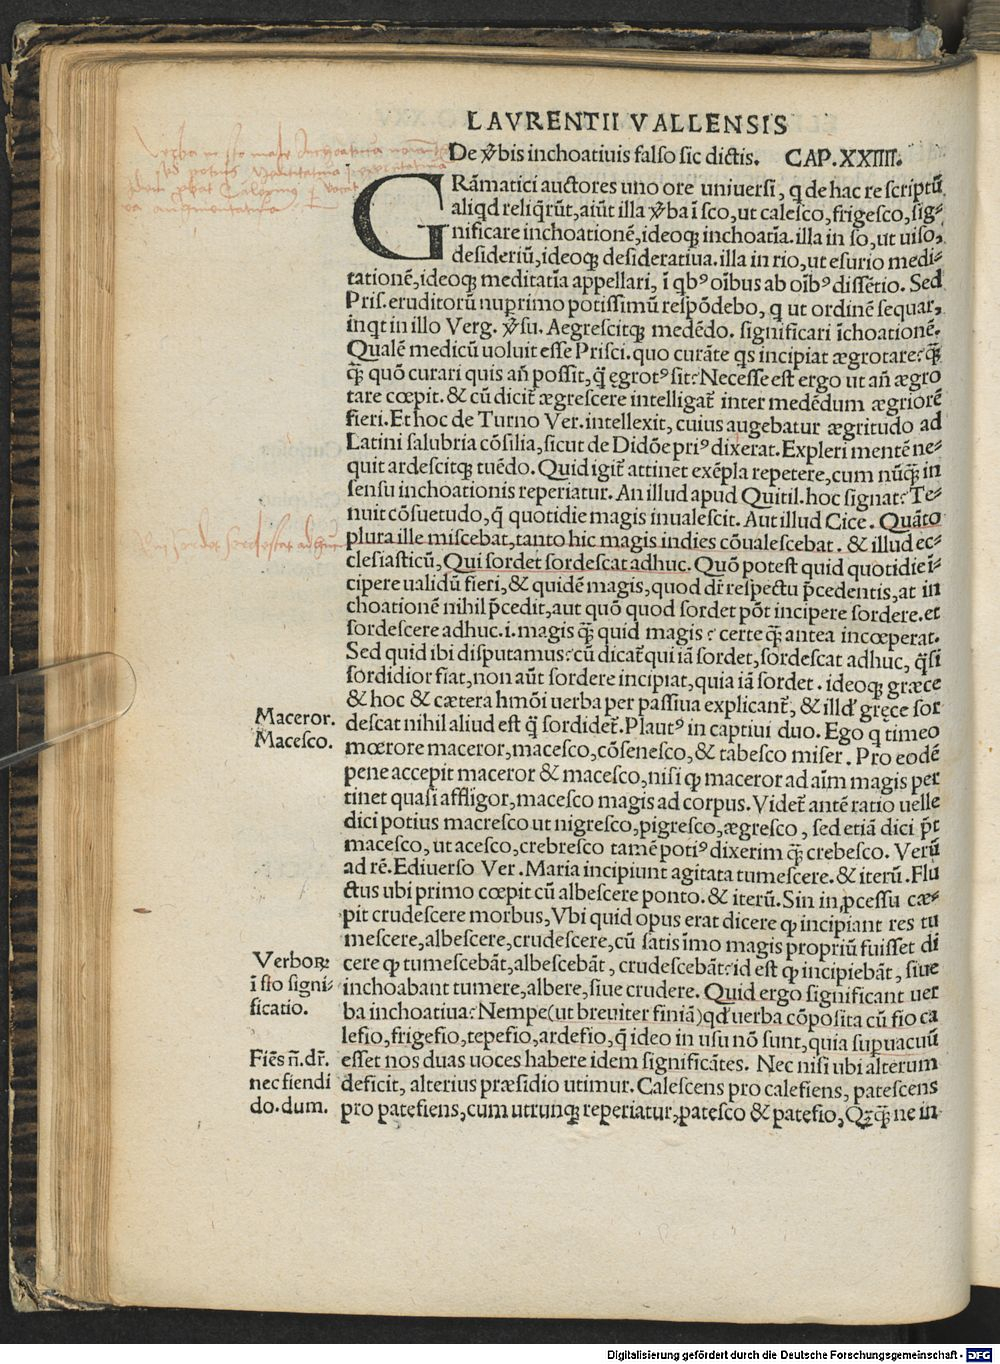 LAVRENTII VALLENSIS
De v̄bis inchoatiuis falso sic dictis. CAP. XXIIII.
GRāmatici auctores uno ore uniuersi, q̄ de hac re scriptū
aliqd reliq̄rūt, aiūt illa v̄ba ī sco, ut calesco, frigesco, sig-
nificare inchoationē, ideoq; inchoatīa. illa in so, ut uiso,
desideriū, ideoq; desideratiua. illa in rio, ut esurio medi-
tationē, ideoq; meditatīa appellari, ī qbꝰ oībus ab oībꝰ dissētio. Sed
Pris. eruditorū nuꝑrimo potissimū respōdebo, q ut ordinē sequar,
inqt in illo Verg. v̄su. Aegrescitq; medēdo. significari īchoationē.
Qualē medicū uoluit esse Prisci. quo curāte qs incipiat ægrotare? q̄
q̄ quō curari quis añ possit, q̄ ęgrotꝰ sit? Necesse est ergo ut añ ægro
tare cœpit. & cū dicit̄ ægrescere intelligat̄ inter medēdum ægriorē
fieri. Et hoc de Turno Ver. intellexit, cuius augebatur ægritudo ad
Latini salubria cōsilia, sicut de Didōe priꝰ dixerat. Expleri mentē ne-
quit ardescitq; tuēdo. Quid igit̄ attinet exēpla repetere, cum nūq̄ in
sensu inchoationis reperiatur. An illud apud Quitil. hoc signat? Te-
nuit cōsuetudo, q̄ quotidie magis inualescit. Aut illud Cice. Quāto
plura ille miscebat, tanto hic magis indies cōualescebat. & illud ec-
clesiasticū, Qui sordet sordescat adhuc. Quō potest quid quotidie ī-
cipere ualidū fieri, & quidē magis, quod dr̄ respectu p̄cedentis, at in
choationē nihil p̄cedit, aut quō quod sordet pōt incipere sordere. et
sordescere adhuc .i. magis q̄ quid magis? certe q̄ antea incœperat.
Sed quid ibi disputamus? cū dicat̄ qui iā sordet, sordescat adhuc, q̄si
sordidior fiat, non aūt sordere incipiat, quia iā sordet. ideoq; græce
& hoc & cætera hmōi uerba per passiua explicant̄, & illd' gręce sor
Maceror. descat nihil aliud est q̄ sordidet̄. Plautꝰ in captiui duo. Ego q timeo
Macesco. mœrore maceror, macesco, cōsenesco, & tabesco miser. Pro eodē
pene accepit maceror & macesco, nisi ꝙ maceror ad aīm magis per
tinet quasi affligor, macesco magis ad corpus. Videt̄ antē ratio uelle
dici potius macresco ut nigresco, pigresco, ægresco, sed etiā dici p̄t
macesco, ut acesco, crebresco tamē potiꝰ dixerim q̄ crebesco. Verū
ad rē. Ediuerso Ver. Maria incipiunt agitata tumescere. & iterū. Flu
ctus ubi primo cœpit cū albescere ponto. & iterū. Sin in ꝓcessu cæ-
pit crudescere morbus, Vbi quid opus erat dicere ꝙ incipiant res tu
mescere, albescere, crudescere, cū satis īmo magis propriū fuisset di
Verborꝝ cere ꝙ tumescebāt, albescebāt, crudescebāt? id est ꝙ incipiebāt, siue
ī sto signi- inchoabant tumere, albere, siue crudere. Quid ergo significant uer
ficatio. ba inchoatiua? Nempe (ut breuiter finiā) qd' uerba cōposita cū fio ca
lefio, frigefio, tepefio, ardefio, q̄ ideo in usu nō sunt, quia supuacuū
Fiēs ñ. dr̄. esset nos duas uoces habere idem significātes. Nec nisi ubi alterum
nec fiendi deficit, alterius præsidio utimur. Calescens pro calefiens, patescens
do. dum. pro patefiens, cum utrunq; reperiatur, patesco & patefio, Qꝫq̄ ne in-
Digitalisierung gefördert durch die Deutsche Forschungsgemeinschaft - DFG